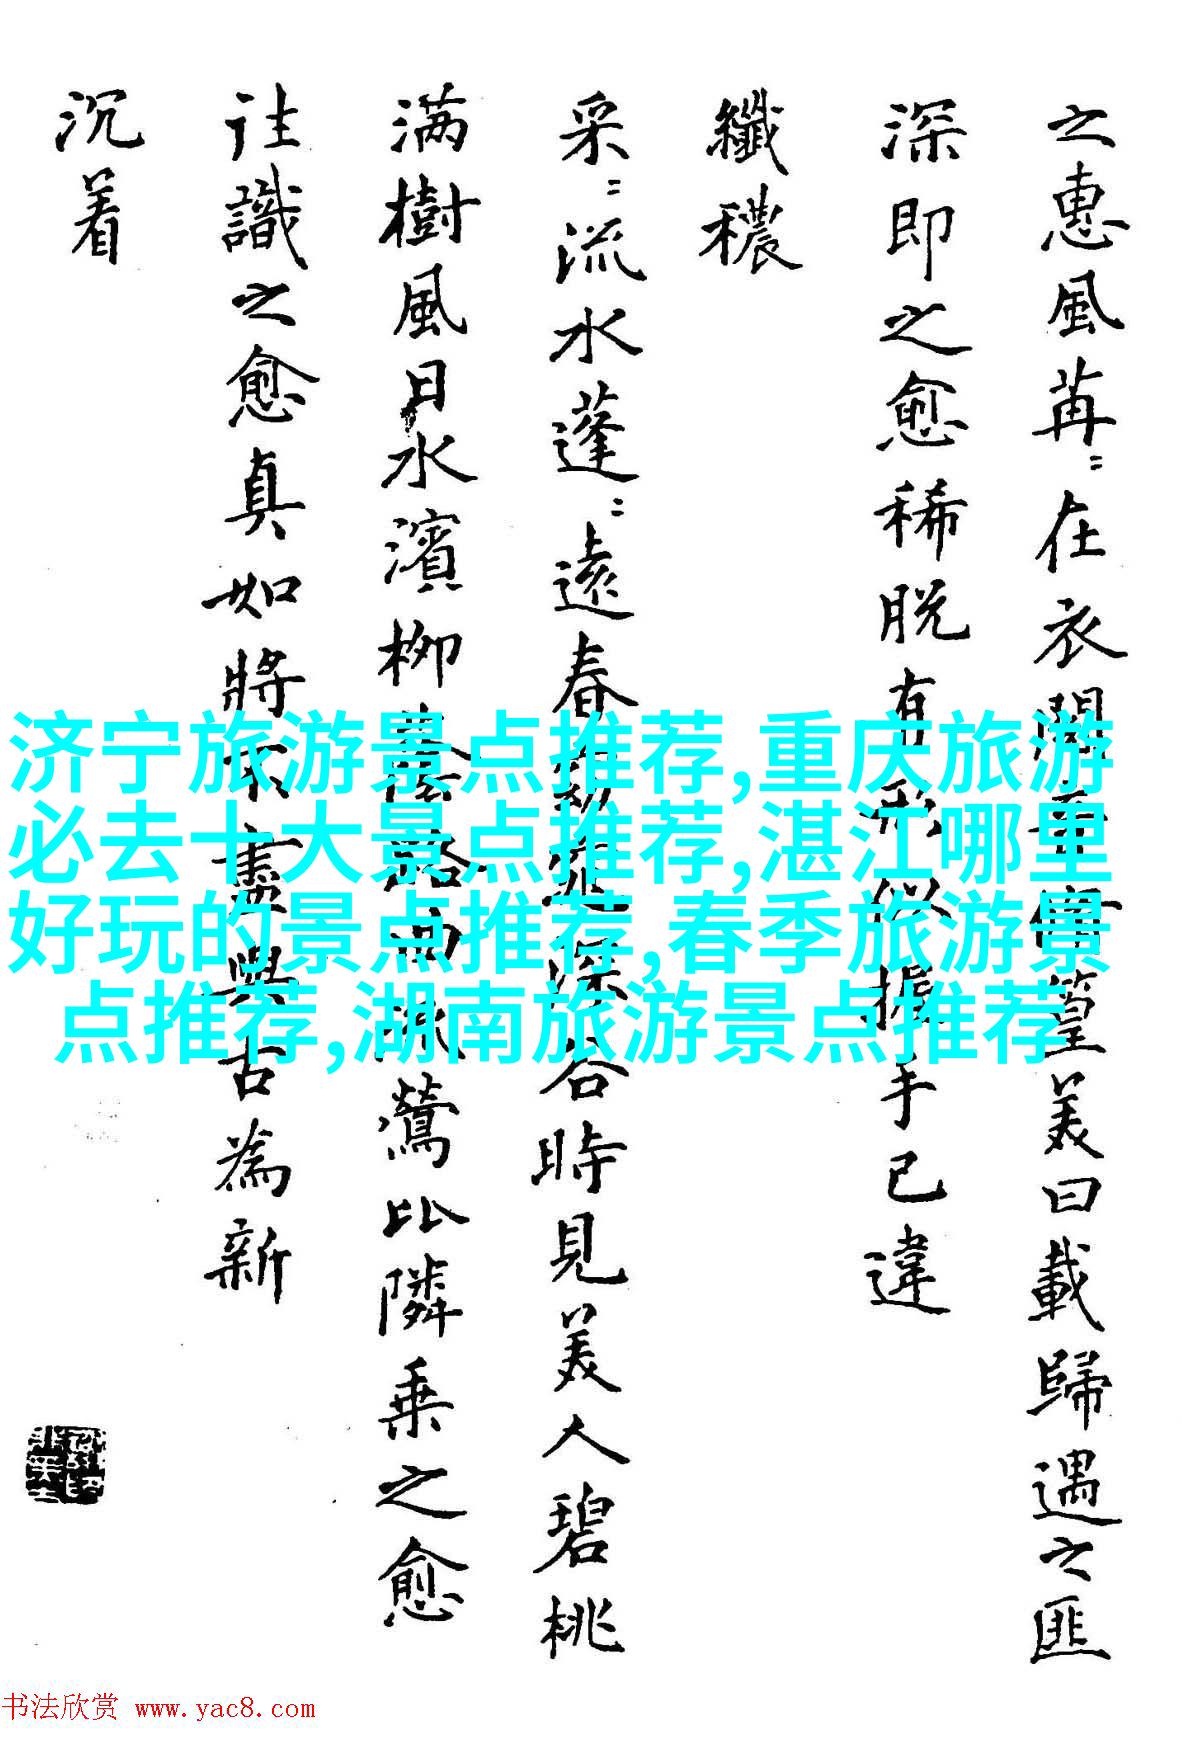 之惠風苒〻在衣閱音脩篁美曰載歸遇之匪
深即之愈稀脱有形似握手已違
纖穠
采〻流水蓬〻遠春窈窕深谷時見美人碧桃
满樹風日水濱柳陰路曲流鶯比隣乗之愈
往識之愈真如將不盡與古為新
沉着
济宁旅游景点推荐,重庆旅游
必去十大景点推荐,湛江哪里
好玩的景点推荐,春季旅游景
点推荐,湖南旅游景点推荐
书法欣赏 www.yac8.com